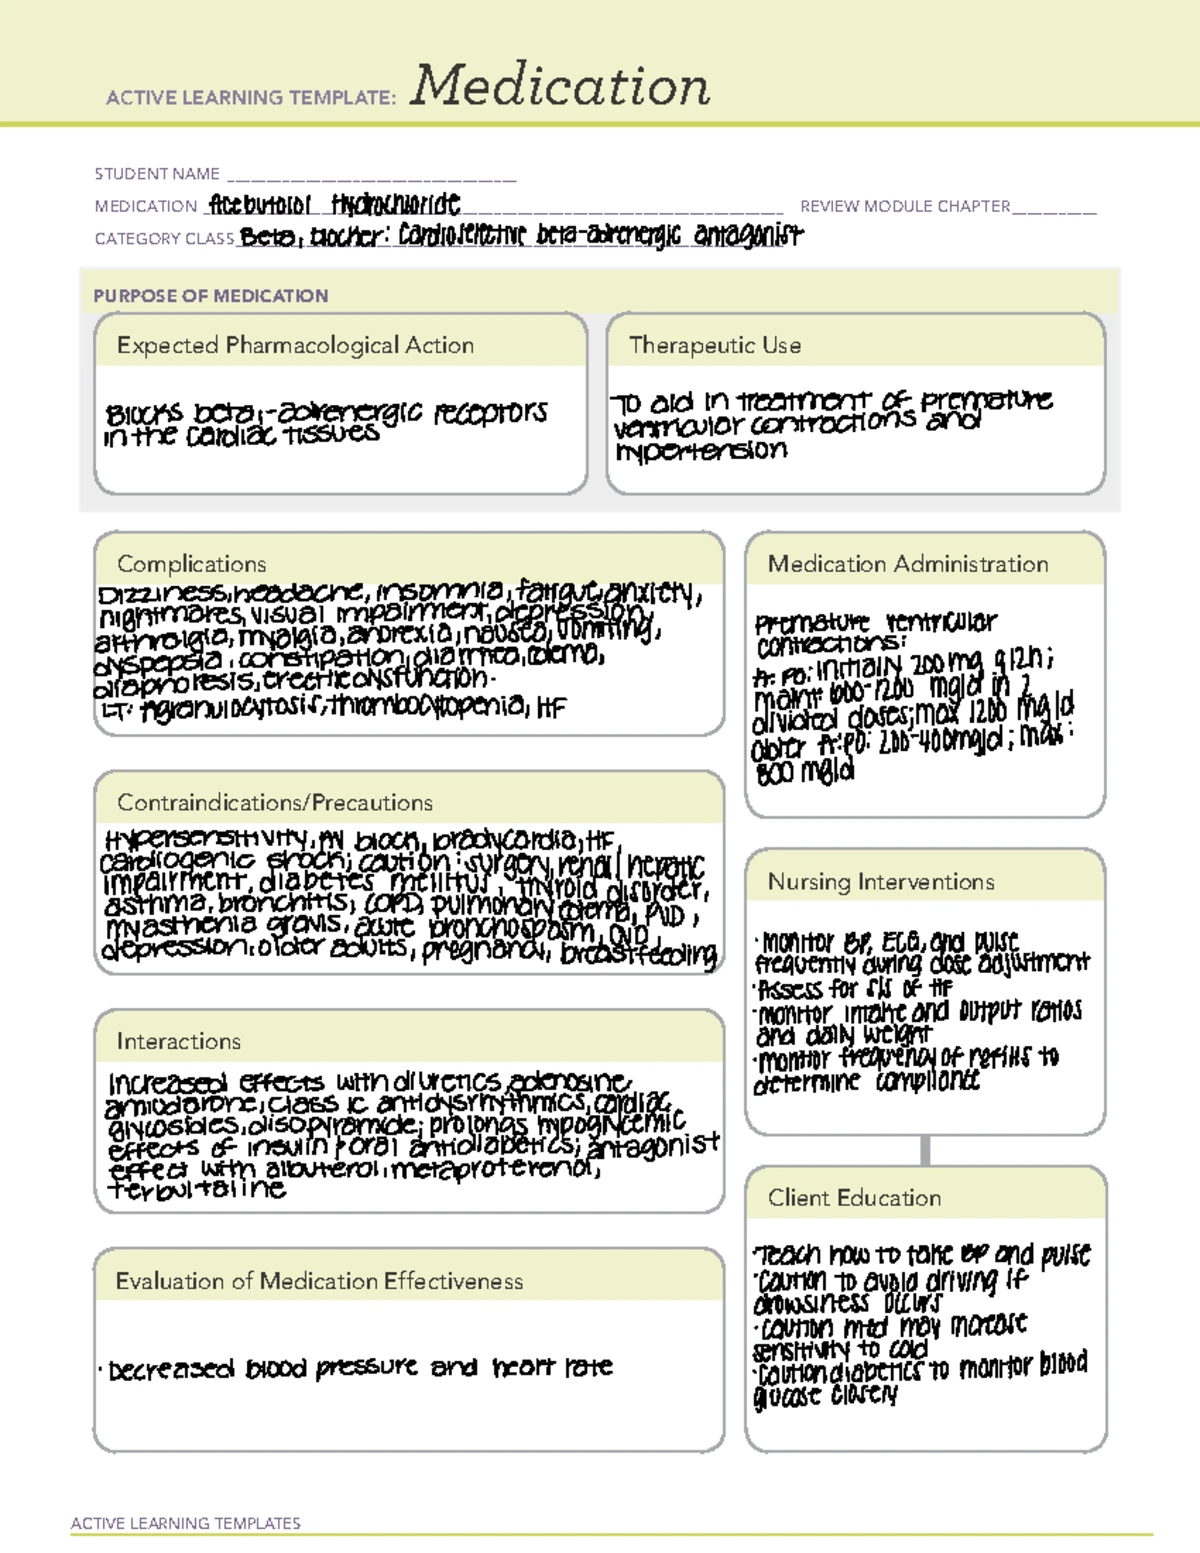 ACTIVE LEARNING TEMPLATE: Medication
STUDENT NAME
MEDICATION Acebutolol Hydrochloride REVIEW MODULE CHAPTER
CATEGORY CLASS Beta, blocker: Cardioselective beta-adrenergic antagonist
PURPOSE OF MEDICATION
Expected Pharmacological Action
Blocks beta,-adrenergic receptors
in the cardiac tissues
Therapeutic Use
To aid in treatment of premature
ventricular contractions and
hypertension
Complications
Dizziness, headache, insomnia, fatigue, anxiety,
nightmares, visual impairment, depression,
arthralgia, myalgia, anorexia, nausea, vomiting,
dyspepsia, constipation, diarrhea, edema,
diaphoresis, erectile dysfunction.
LT: Agranulocytosis, thrombocytopenia, HF
Contraindications/Precautions
Hypersensitivity, AV block, bradycardia, HF,
cardiogenic shock; caution: surgery, renal/hepatic
impairment, diabetes mellitus, thyroid disorder,
asthma, bronchitis, COPD, pulmonary edema, PVD,
myasthenia gravis, acute bronchospasm, CVD,
depression: older adults, pregnancy, breastfeeding
Interactions
Increased effects with diuretics, adenosine,
amiodarone, class IC antidysrhythmics, cardiac
glycosides, disopyramide; prolongs hypoglycemic
effects of insulin, oral antidiabetics; antagonist
effect with albuterol, metaproterenol,
terbultaline
Evaluation of Medication Effectiveness
· Decreased blood pressure and heart rate
Medication Administration
Premature ventricular
contractions:
A: PO: Initially 200mg q12h;
maint: 600-1200 mg/d in 2
divided doses; max 1200 mg/d
Older A: PO: 200-400mg/d; max:
800 mg/d
Nursing Interventions
· Monitor BP, ECG, and pulse
frequently during dose adjustment
· Assess for S/S of HF
· monitor intake and output ratios
and daily weight
· monitor frequency of refills to
determine compliance
Client Education
· Teach how to take BP and pulse
· Caution to avoid driving if
drowsiness occurs
· Caution med may increase
sensitivity to cold
· Caution diabetics to monitor blood
glucose closely
ACTIVE LEARNING TEMPLATES